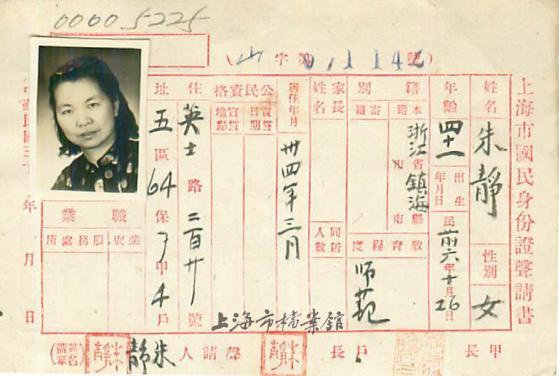 00005225
山字第 號
上海市國民身份證聲請書
姓名 朱靜
性別 女
年齡 四十一
出生年月日 民前六年十月26日
籍別
本籍 浙江省鎮海縣市
寄籍
教育程度 師範
家長姓名
同居人數
居住年月 卅四年三月
公民資格
宣誓日期
宣誓地點
住址 英士路二百廿號
五區64保7甲4戶
職業
業別
服務處所
年 月 日
甲長
戶長
聲請人 朱靜
(簽名蓋章)
上海市檔案館